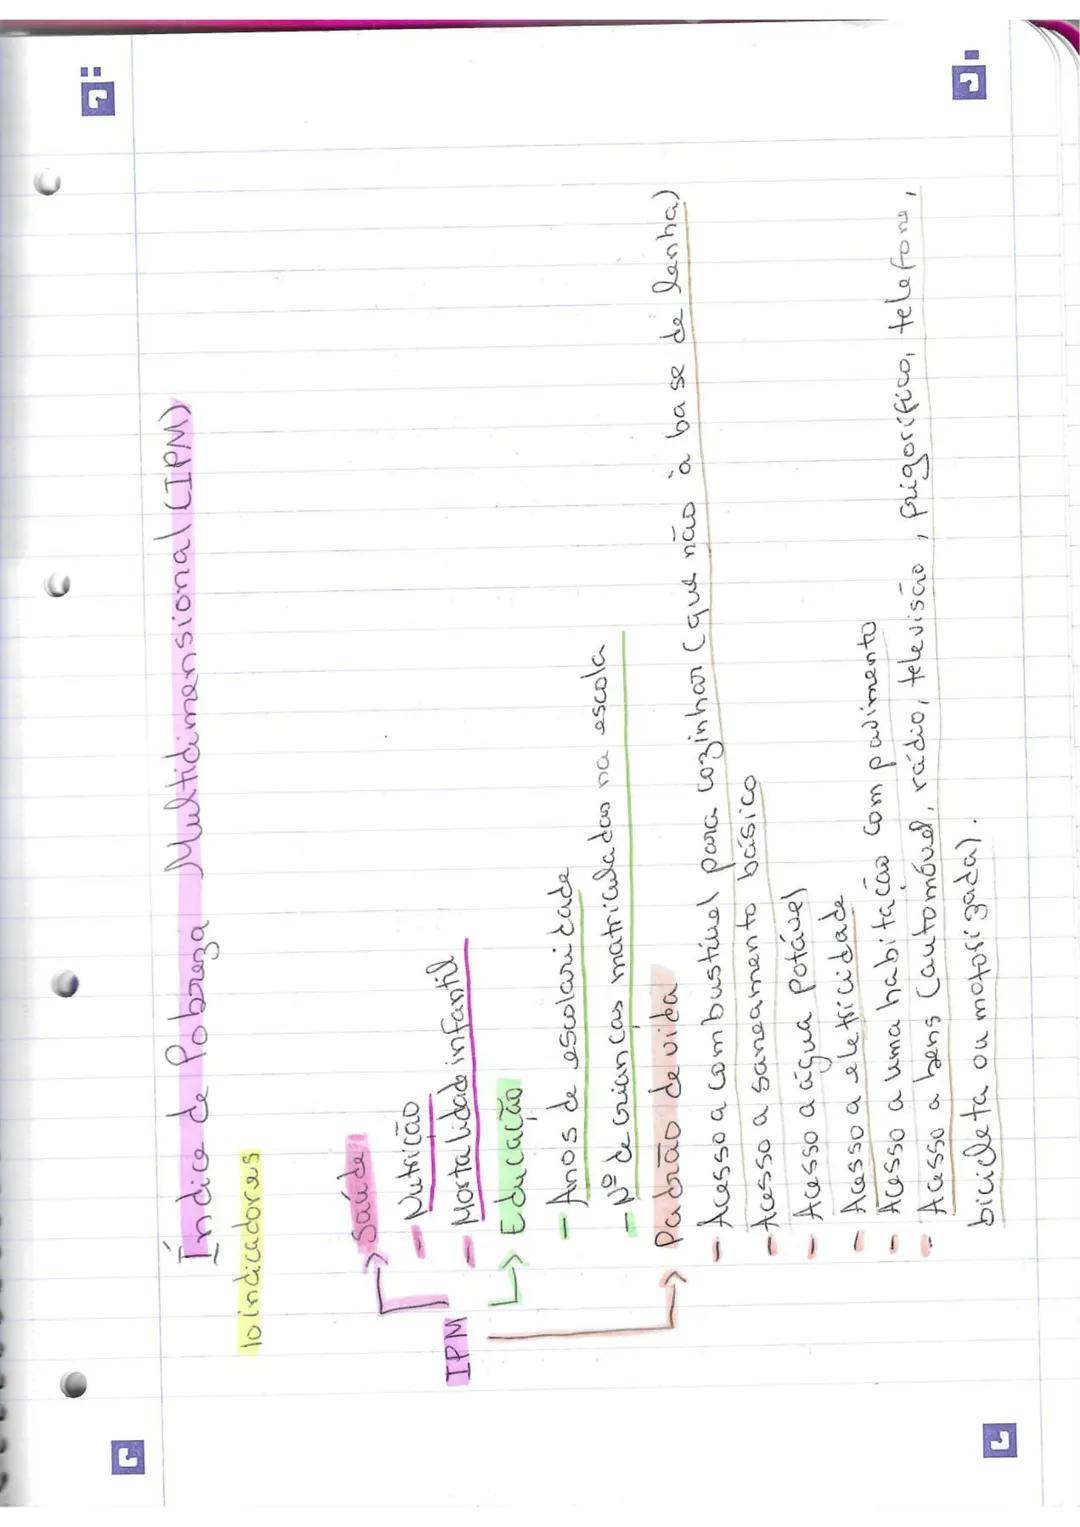 Índice de Pobreza Multidimensional (IPM)
10 indicadores
Saúde
- Nutrição
- Mortalidade infantil
IPM
→ Educação
- Anos de escolaridade
- Nº de crianças matriculadas na escola
Padrão de vida
- Acesso a combustível para cozinhar (que não à base de lenha)
- Acesso a saneamento básico
- Acesso a água potável
- Acesso a eletricidade
- Acesso a uma habitação com pavimento
- Acesso a bens (automóvel, rádio, televisão, frigorífico, telefone,
bicicleta ou motorizada).